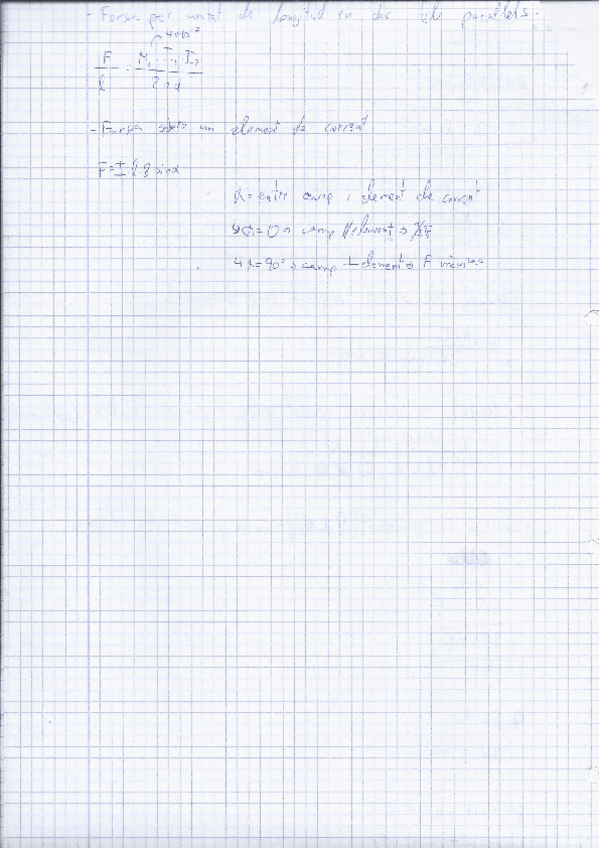 - Força per unitat de longitud en dos fils paral·lels.
F/l = M · I1 · I2 / 2π d
- Força sobre un element de corrent
F = I · l · B sinα
α = entre camp i element de corrent
α = 0 → camp // element →
α = 90° → camp ⊥ element → F màxima